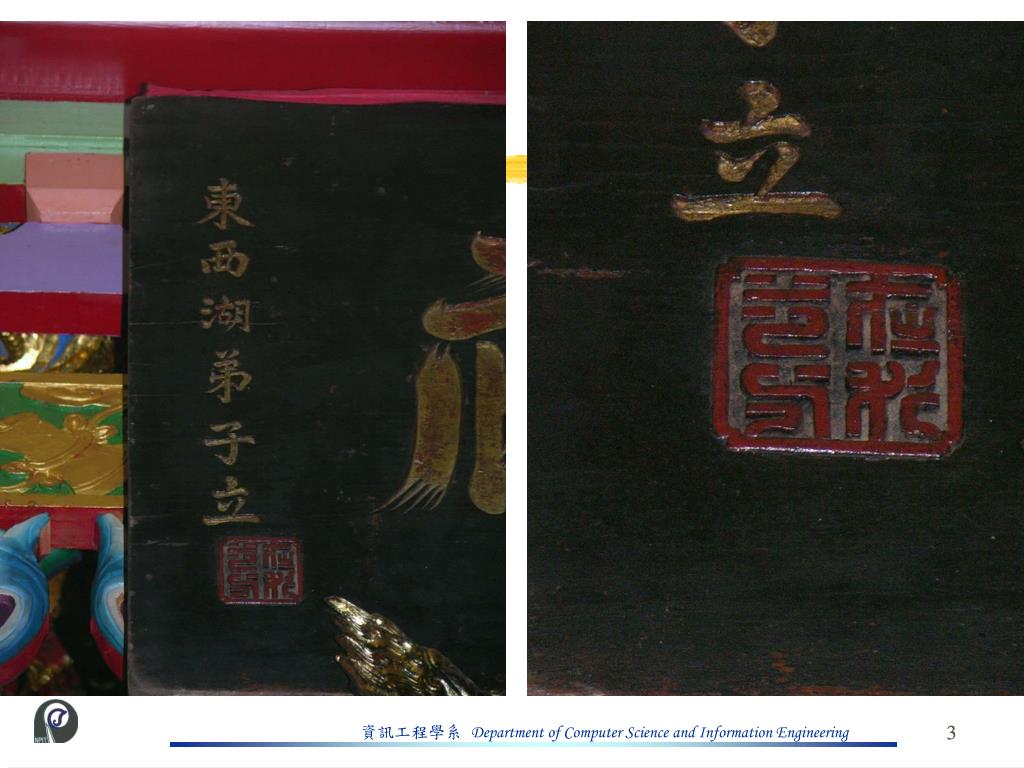 東西湖弟子立
立
資訊工程學系 Department of Computer Science and Information Engineering
3